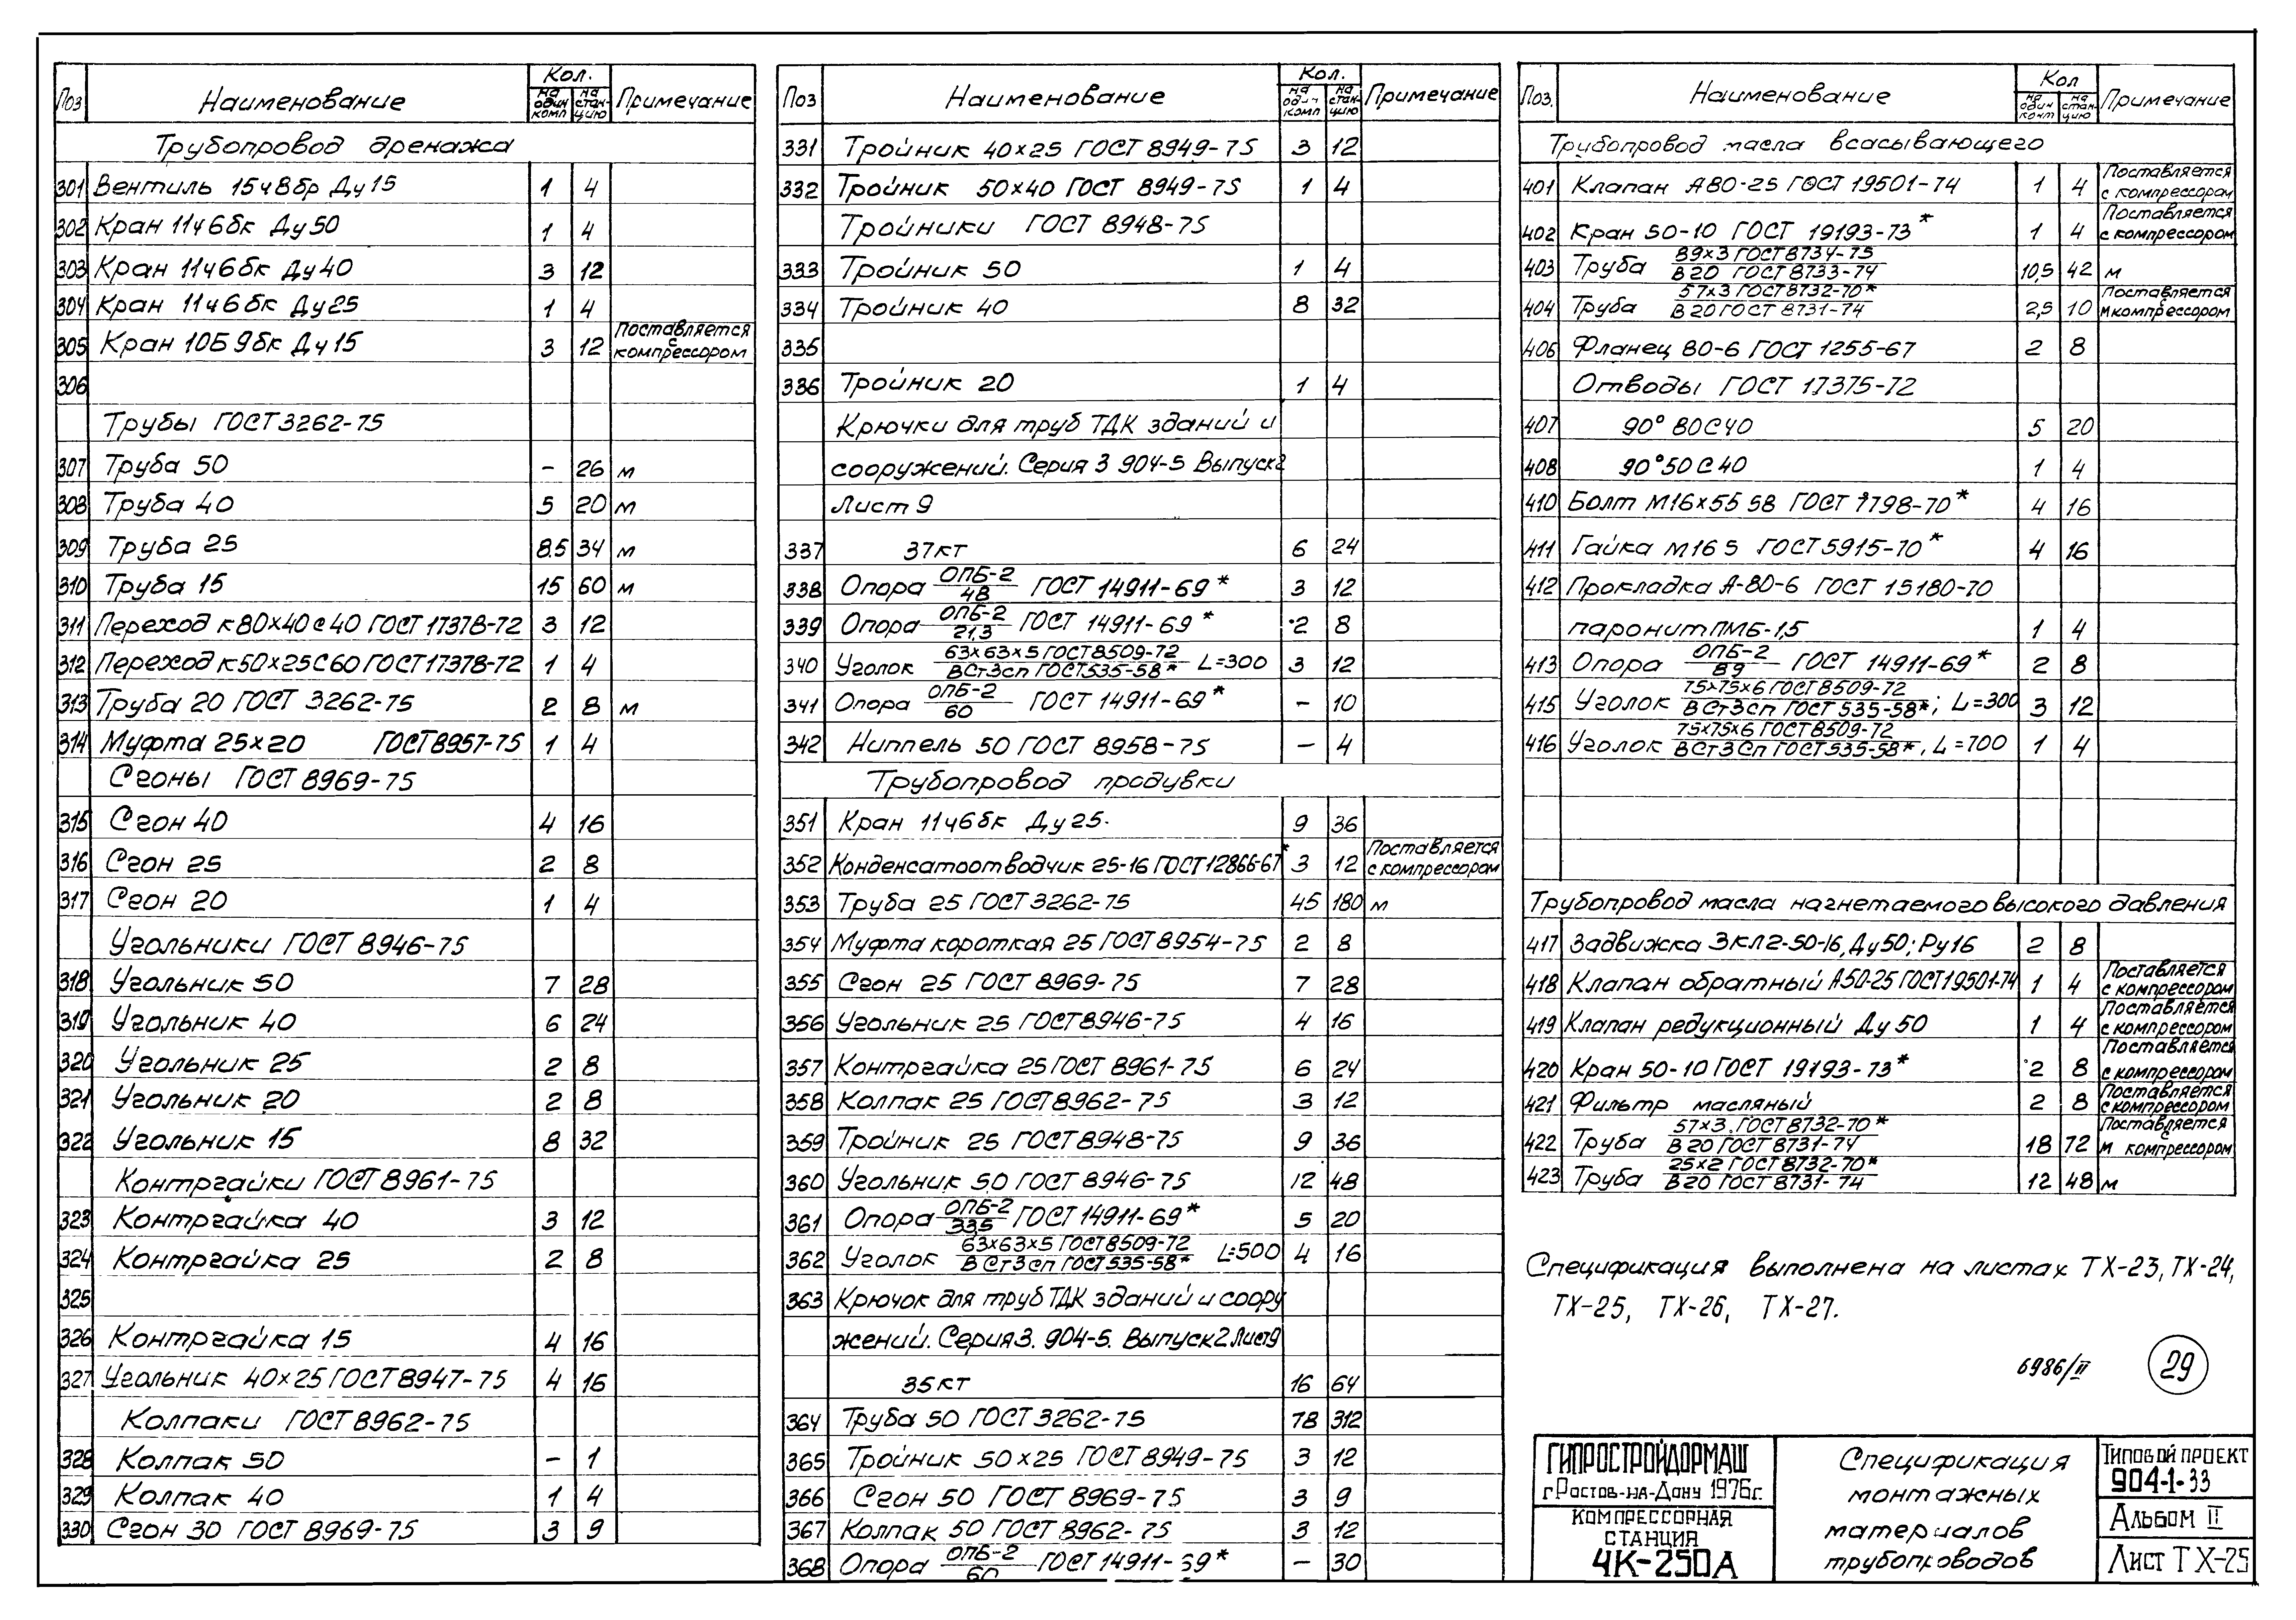 Поз Наименование Кол. на один комп на стан-цию Примечание
Трубопровод дренажа
301 Вентиль 15ч8бр Ду15 1 4
302 Кран 11ч6бк Ду50 1 4
303 Кран 11ч6бк Ду40 3 12
304 Кран 11ч6бк Ду25 1 4
305 Кран 10Б9бк Ду15 3 12 Поставляется с компрессором
306
Трубы ГОСТ 3262-75
307 Труба 50 – 26 м
308 Труба 40 5 20 м
309 Труба 25 8.5 34 м
310 Труба 15 15 60 м
311 Переход к80×40с40 ГОСТ 17378-72 3 12
312 Переход к50×25С60 ГОСТ 17378-72 1 4
313 Труба 20 ГОСТ 3262-75 2 8 м
314 Муфта 25×20 ГОСТ 8957-75 1 4
Сгоны ГОСТ 8969-75
315 Сгон 40 4 16
316 Сгон 25 2 8
317 Сгон 20 1 4
Угольники ГОСТ 8946-75
318 Угольник 50 7 28
319 Угольник 40 6 24
320 Угольник 25 2 8
321 Угольник 20 2 8
322 Угольник 15 8 32
Контргайки ГОСТ 8961-75
323 Контргайка 40 3 12
324 Контргайка 25 2 8
325
326 Контргайка 15 4 16
327 Угольник 40×25 ГОСТ 8947-75 4 16
Колпаки ГОСТ 8962-75
328 Колпак 50 – 1
329 Колпак 40 1 4
330 Сгон 30 ГОСТ 8969-75 3 9
Поз Наименование Кол. на один комп на стан-цию Примечание
331 Тройник 40×25 ГОСТ 8949-75 3 12
332 Тройник 50×40 ГОСТ 8949-75 1 4
Тройники ГОСТ 8948-75
333 Тройник 50 1 4
334 Тройник 40 8 32
335
336 Тройник 20 1 4
Крючки для труб ТДК зданий и
сооружений. Серия 3 904-5 Выпуск 2
Лист 9
337 37кт 6 24
338 Опора ОПБ-2/48 ГОСТ 14911-69* 3 12
339 Опора ОПБ-2/21,3 ГОСТ 14911-69* 2 8
340 Уголок 63×63×5 ГОСТ 8509-72/ВСт3сп ГОСТ 535-58* L=300 3 12
341 Опора ОПБ-2/60 ГОСТ 14911-69* – 10
342 Ниппель 50 ГОСТ 8958-75 – 4
Трубопровод продувки
351 Кран 11ч6бк Ду25. 9 36
352 Конденсатоотводчик 25-16 ГОСТ 12866-67* 3 12 Поставляется с компрессором
353 Труба 25 ГОСТ 3262-75 45 180 м
354 Муфта короткая 25 ГОСТ 8954-75 2 8
355 Сгон 25 ГОСТ 8969-75 7 28
356 Угольник 25 ГОСТ 8946-75 4 16
357 Контргайка 25 ГОСТ 8961-75 6 24
358 Колпак 25 ГОСТ 8962-75 3 12
359 Тройник 25 ГОСТ 8948-75 9 36
360 Угольник 50 ГОСТ 8946-75 12 48
361 Опора ОПБ-2/33,5 ГОСТ 14911-69* 5 20
362 Уголок 63×63×5 ГОСТ 8509-72/ВСт3сп ГОСТ 535-58* L=500 4 16
363 Крючок для труб ТДК зданий и соору
жений. Серия 3. 904-5. Выпуск 2 Лист 9
35кт 16 64
364 Труба 50 ГОСТ 3262-75 78 312
365 Тройник 50×25 ГОСТ 8949-75 3 12
366 Сгон 50 ГОСТ 8969-75 3 9
367 Колпак 50 ГОСТ 8962-75 3 12
368 Опора ОПБ-2/60 ГОСТ 14911-69* – 30
Поз. Наименование Кол на один комп на стан-цию Примечание
Трубопровод масла всасывающего
401 Клапан А80-25 ГОСТ 19501-74 1 4 Поставляется с компрессором
402 Кран 50-10 ГОСТ 19193-73* 1 4 Поставляется с компрессором
403 Труба 89×3 ГОСТ 8734-75/В20 ГОСТ 8733-74 10,5 42 м
404 Труба 57×3 ГОСТ 8732-70*/В20 ГОСТ 8731-74 2,5 10 м Поставляется с компрессором
406 Фланец 80-6 ГОСТ 1255-67 2 8
Отводы ГОСТ 17375-72
407 90° 80С40 5 20
408 90° 50С40 1 4
410 Болт М16×55 58 ГОСТ 7798-70* 4 16
411 Гайка М16 5 ГОСТ 5915-70* 4 16
412 Прокладка А-80-6 ГОСТ 15180-70
паронит ПМБ-1,5 1 4
413 Опора ОПБ-2/89 ГОСТ 14911-69* 2 8
415 Уголок 75×75×6 ГОСТ 8509-72/ВСт3сп ГОСТ 535-58*; L=300 3 12
416 Уголок 75×75×6 ГОСТ 8509-72/ВСт3Сп ГОСТ 535-58*, L=700 1 4
Трубопровод масла нагнетаемого высокого давления
417 Задвижка ЗКЛ2-50-16, Ду50; Ру16 2 8
418 Клапан обратный А50-25 ГОСТ 19501-74 1 4 Поставляется с компрессором
419 Клапан редукционный Ду 50 1 4 Поставляется с компрессором
420 Кран 50-10 ГОСТ 19193-73* 2 8 Поставляется с компрессором
421 Фильтр масляный 2 8 Поставляется с компрессором
422 Труба 57×3. ГОСТ 8732-70*/В20 ГОСТ 8731-74 18 72 м Поставляется с компрессором
423 Труба 25×2 ГОСТ 8732-70*/В20 ГОСТ 8731-74 12 48 м
Спецификация выполнена на листах ТХ-23, ТХ-24,
ТХ-25, ТХ-26, ТХ-27.
6986/II 29
ГИПРОСТРОЙДОРМАШ
г.Ростов-на-Дону 1976г.
КОМПРЕССОРНАЯ
СТАНЦИЯ
4К-250А
Спецификация
монтажных
материалов
трубопроводов
Типовой проект
904-1-33
Альбом II
Лист ТХ-25